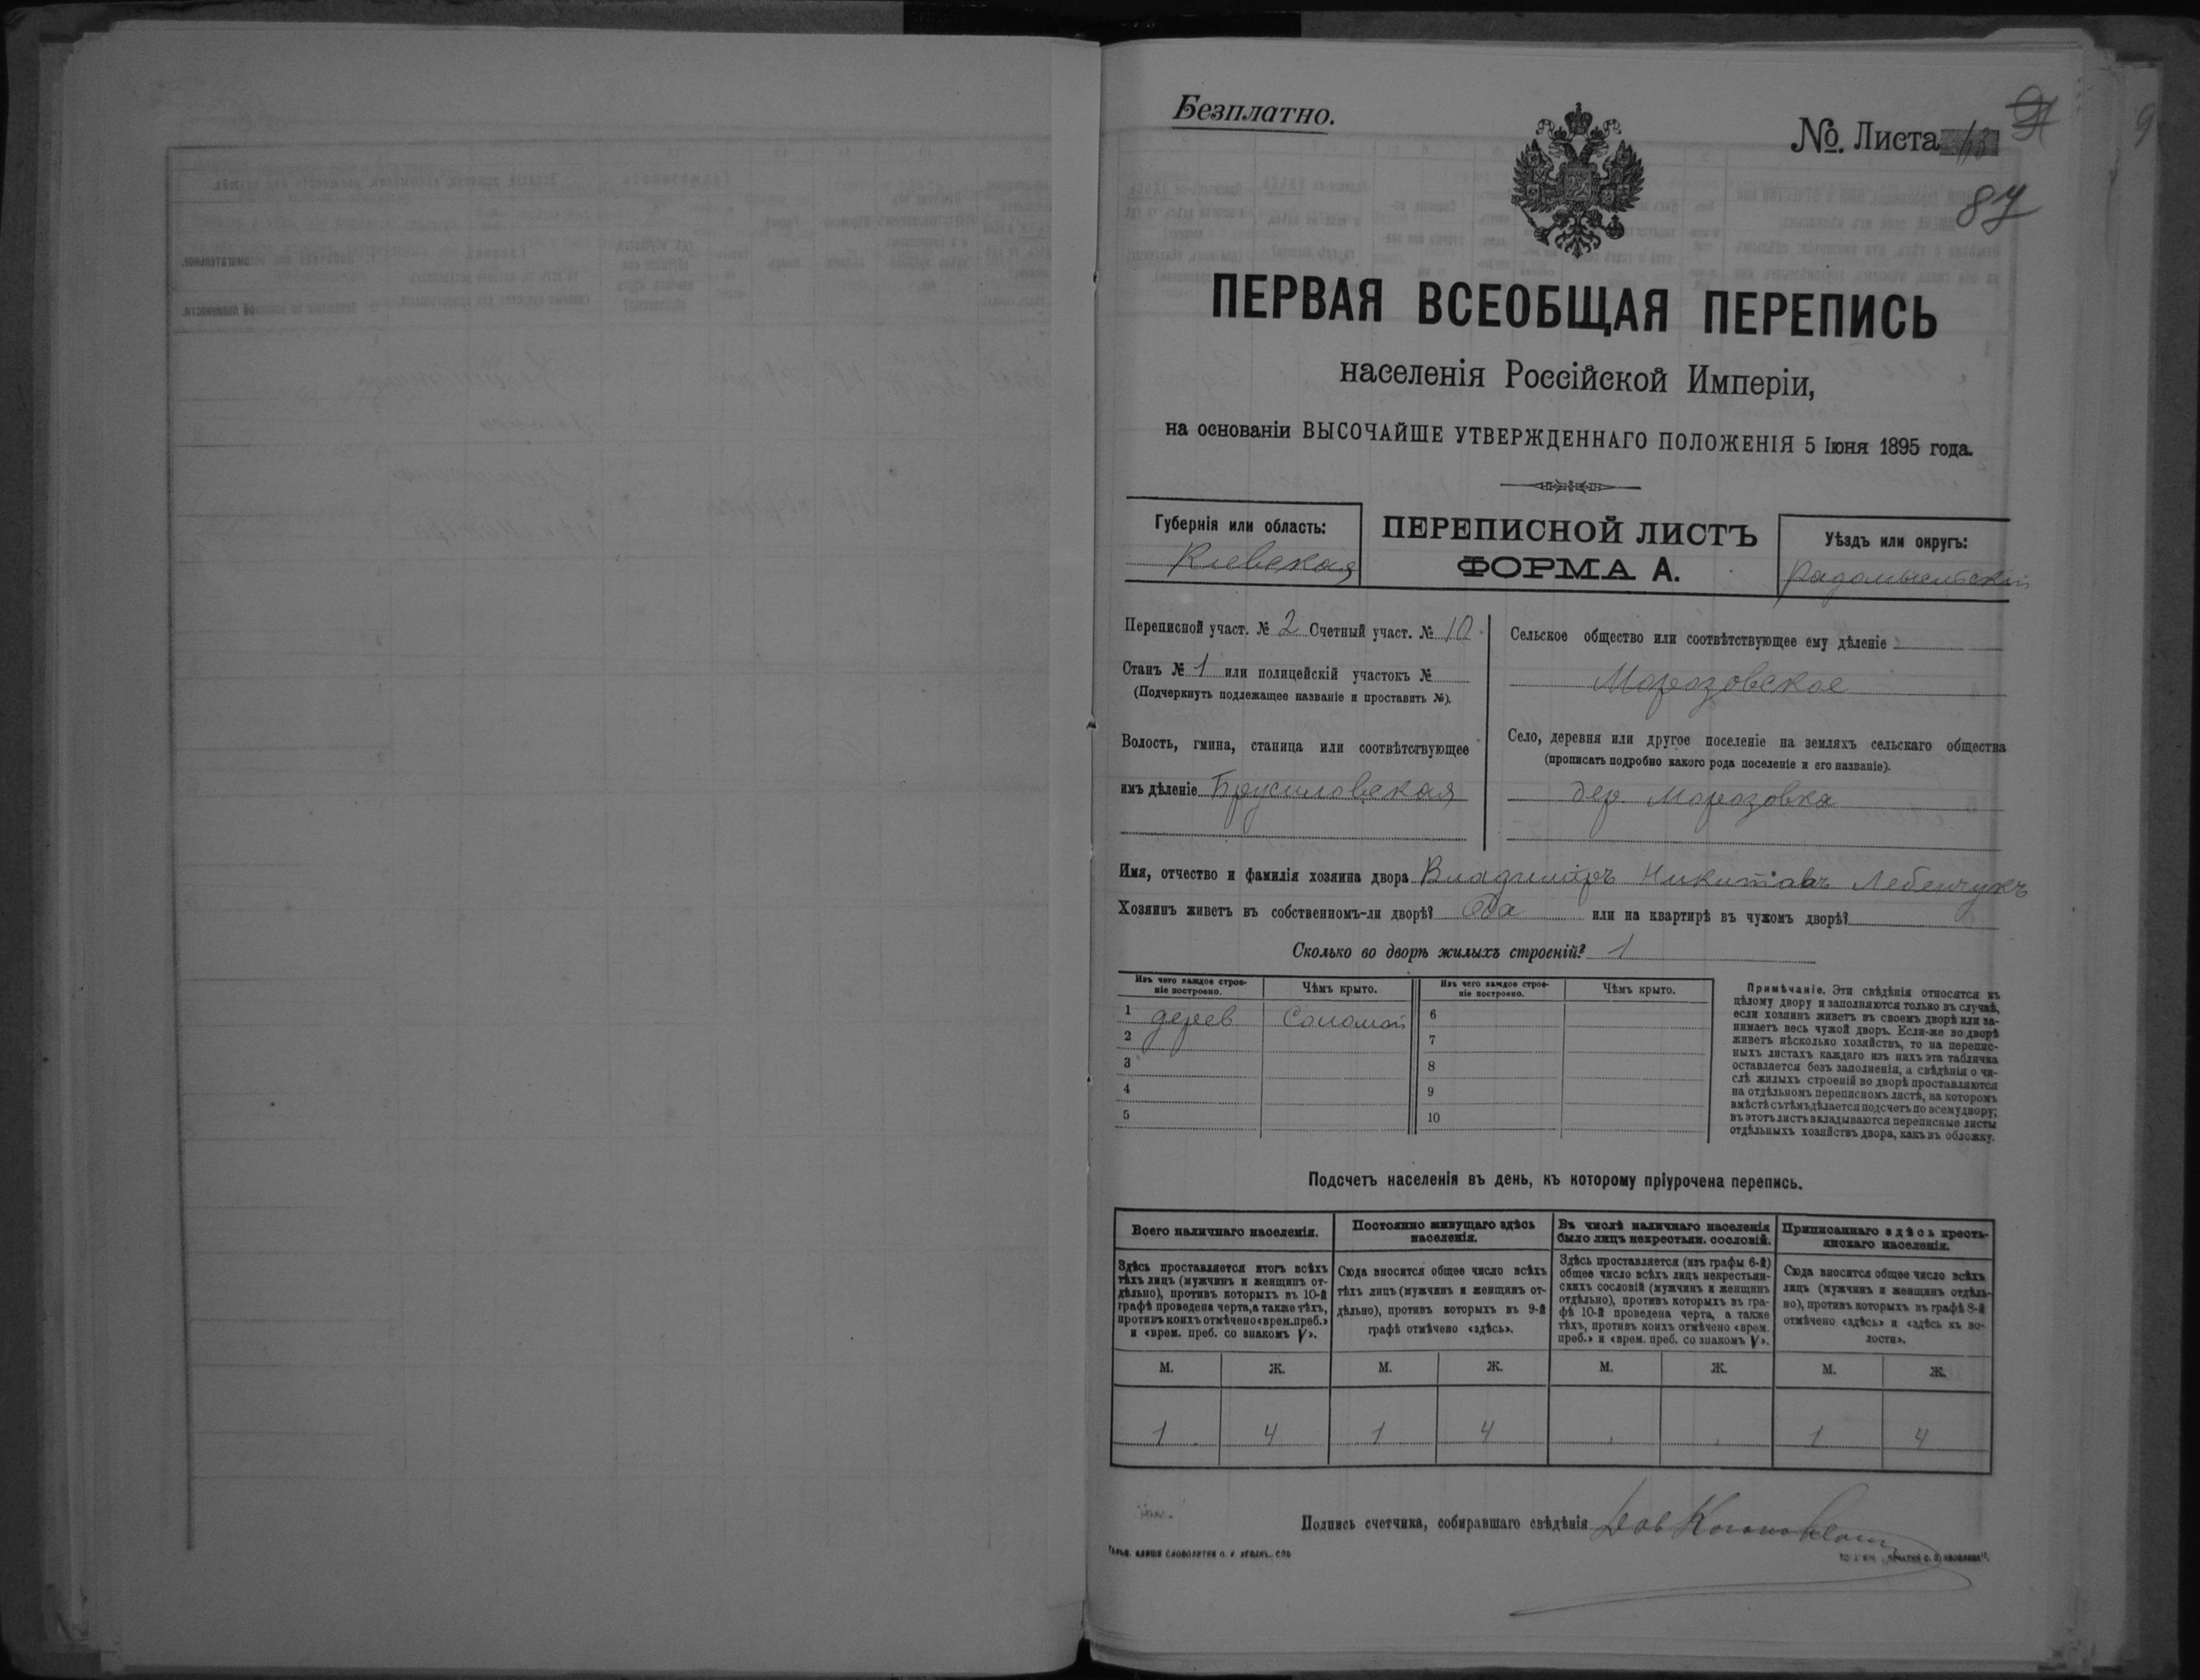 Безплатно.
№. Листа 13
87
ПЕРВАЯ ВСЕОБЩАЯ ПЕРЕПИСЬ
населенія Россійской Имперіи,
на основаніи ВЫСОЧАЙШЕ УТВЕРЖДЕННАГО ПОЛОЖЕНІЯ 5 Іюня 1895 года.
Губернія или область:
Киевская
ПЕРЕПИСНОЙ ЛИСТЪ
ФОРМА А.
Уѣздъ или округъ:
Радомысльскій
Переписной участ. № 2 Счетный участ. № 10
Станъ № 1 или полицейскій участокъ №
(Подчеркнуть подлежащее названіе и проставить №).
Волость, гмина, станица или соотвѣтствующее
имъ дѣленіе Брусиловская
Сельское общество или соотвѣтствующее ему дѣленіе
Морозовское
Село, деревня или другое поселеніе на земляхъ сельскаго общества
(прописать подробно какого рода поселеніе и его названіе).
дер Морозовка
Имя, отчество и фамилія хозяина двора Владиміръ Никитовъ Лебенчукъ
Хозяинъ живетъ въ собственномъ-ли дворѣ? да или на квартирѣ въ чужомъ дворѣ?
Сколько во дворѣ жилыхъ строеній? 1
Изъ чего каждое строе-
ніе построено.
Чѣмъ крыто.
Изъ чего каждое строе-
ніе построено.
Чѣмъ крыто.
1 дерев Соломой 6
2 7
3 8
4 9
5 10
Примѣчаніе. Эти свѣдѣнія относятся къ
цѣлому двору и заполняются только въ случаѣ,
если хозяинъ живетъ въ своемъ дворѣ или за-
нимаетъ весь чужой дворъ. Если-же во дворѣ
живетъ нѣсколько хозяйствъ, то на перепис-
ныхъ листахъ каждаго изъ нихъ эта табличка
оставляется безъ заполненія, а свѣдѣнія о чи-
слѣ жилыхъ строеній во дворѣ проставляются
на отдѣльномъ переписномъ листѣ, на которомъ
вмѣстѣ съ тѣмъ дѣлается подсчетъ по всему двору;
въ этотъ листъ вкладываются переписные листы
отдѣльныхъ хозяйствъ двора, какъ въ обложку.
Подсчетъ населенія въ день, къ которому пріурочена перепись.
Всего наличнаго населенія.
Здѣсь проставляется итогъ всѣхъ
тѣхъ лицъ (мужчинъ и женщинъ от-
дѣльно), противъ которыхъ въ 10-й
графѣ проведена черта, а также тѣхъ,
противъ коихъ отмѣчено «врем. преб.»
и «врем. преб. со знакомъ V».
Постоянно живущаго здѣсь
населенія.
Сюда вносится общее число всѣхъ
тѣхъ лицъ (мужчинъ и женщинъ от-
дѣльно), противъ которыхъ въ 9-й
графѣ отмѣчено «здѣсь».
Въ числѣ наличнаго населенія
было лицъ некрестьян. сословій.
Здѣсь проставляется (изъ графы 6-й)
общее число всѣхъ лицъ некрестьян-
скихъ сословій (мужчинъ и женщинъ
отдѣльно), противъ которыхъ въ гра-
фѣ 10-й проведена черта, а также
тѣхъ, противъ коихъ отмѣчено «врем.
преб.» и «врем. преб. со знакомъ V».
Приписаннаго здѣсь кресть-
янскаго населенія.
Сюда вносится общее число всѣхъ
лицъ (мужчинъ и женщинъ отдѣль-
но), противъ которыхъ въ графѣ 8-й
отмѣчено «здѣсь» и «здѣсь къ во-
лости».
М. Ж. М. Ж. М. Ж. М. Ж.
1 4 1 4 1 4
Подпись счетчика, собиравшаго свѣдѣнія